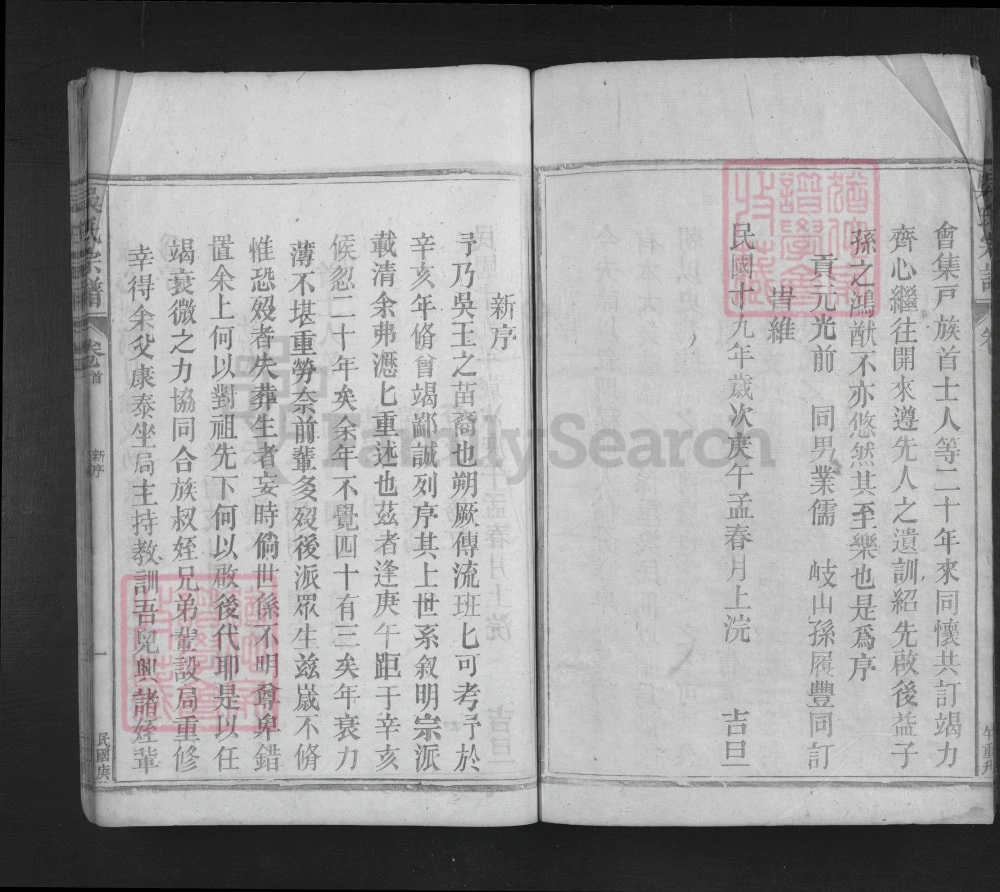 會集戸族首士人等二十年來同懷共訂竭力
齊心繼往開來遵先人之遺訓紹先啟後益子
孫之鴻猷不亦悠然其至樂也是爲序
貢元光前 同男業儒 岐山孫履豐同訂
維
民國十九年歲次庚午孟春月上浣 吉旦
新序
予乃吳玉之苗裔也朔厥傳流班匕可考予於
辛亥年脩曾竭鄙誠列序其上世系叙明宗派
載清余弗瀝匕重述也茲者逢庚午距于辛亥
候忽二十年矣余年不覺四十有三矣年衰力
薄不堪重勞奈前輩多歿後派眾生兹嵗不脩
惟恐歿者失葬生者妄時倘世係不明尊卑錯
置余上何以對祖先下何以啟後代耶是以任
竭衰微之力協同合族叔姪兄弟輩設局重修
幸得余父康泰坐局主持教訓吾兒與諸姪輩
吳氏宗譜
卷首
新序
一
民國庚
FamilySearch